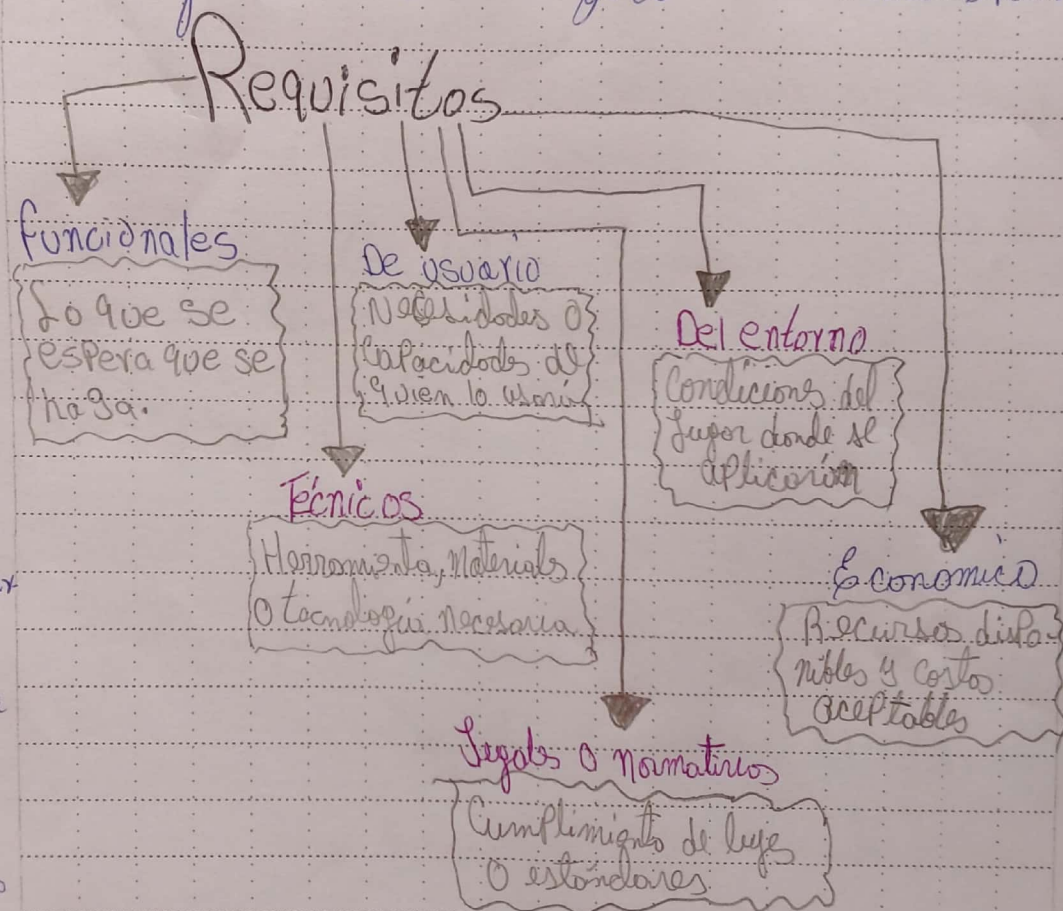 Requisitos
funcionales
Lo que se
espera que se
haga.
De usuario
Necesidades o
capacidades de
quien lo usará
Del entorno
Condiciones del
lugar donde se
aplicarán
Técnicos
Herramienta, materiales
o tecnología necesaria
Económico
Recursos dispo-
nibles y costos
aceptables
Legales o normativos
Cumplimiento de leyes
o estándares